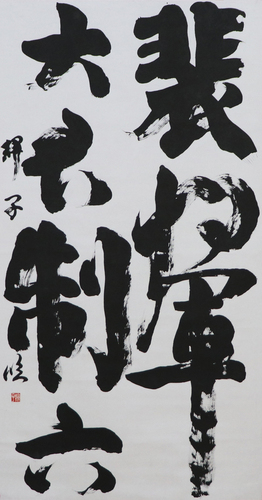 裴將軍
大君制六
子臨